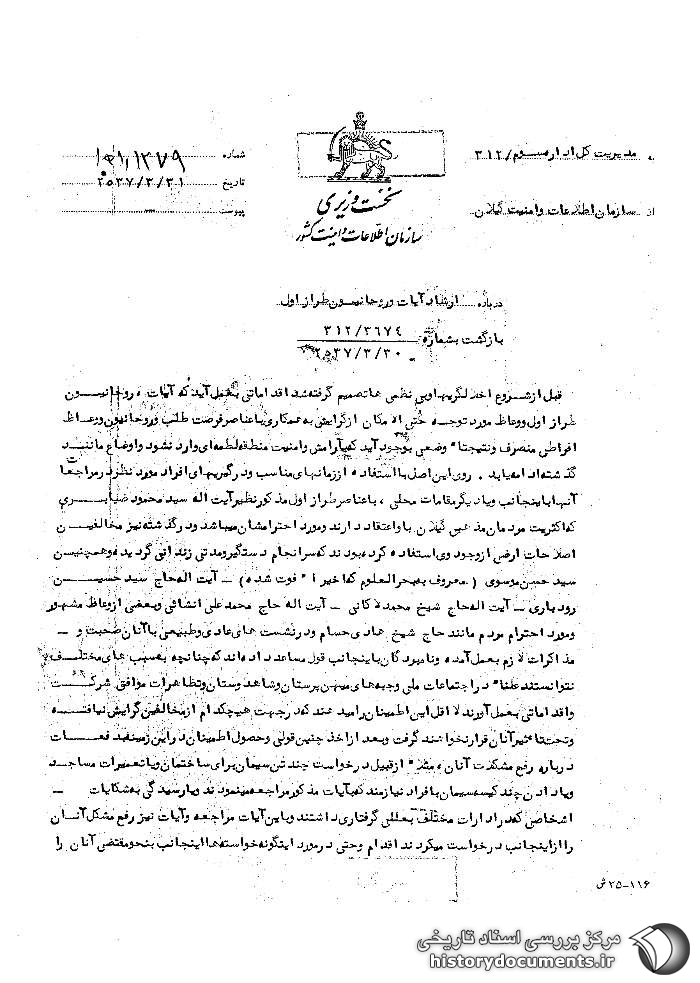 به مدیریت کل اداره سوم / ۳۱۲
از سازمان اطلاعات و امنیت گیلان
شماره
تاریخ ۲۵۳۷/۳/۳۱
پیوست
نخست وزیری
سازمان اطلاعات و امنیت کشور
درباره ارشاد آیات و روحانیون طراز اول
بازگشت بشماره ۳۱۲/۳۶۷۴
۲۵۳۷/۳/۳۰
قبل از شروع اخلالگریها و بی نظمی ها تصمیم گرفته شد اقداماتی بعمل آید که آیات ، روحانیون
طراز اول و وعاظ مورد توجه حتی الامکان از گرایش به همکاری با عناصر فرصت طلب و روحانیون و وعاظ
افراطی منصرف و نتیجتا" وضعی بوجود آید که بآرامش و امنیت منطقه لطمه ای وارد نشود و اوضاع مانند
گذشته ادامه یابد . روی این اصل با استفاده از زمانهای مناسب و درگیریهای افراد مورد نظر در مراجعا ت
آنها با اینجانب و یا دیگر مقامات محلی ، با عناصر طراز اول مذکور نظیر آیت اله سید محمود ضیابری
که اکثریت مردمان مذهبی گیلان باو اعتقاد دارند و مورد احترامشان میباشد و در گذشته نیز مخالفین
اصلاحات ارضی از وجود وی استفاده کرده بودند که سرانجام دستگیر و مدتی زندانی گردیده و همچنین
سید حسن موسوی ( معروف به بحرالعلوم که اخیرا" فوت شده ) ـ آیت اله حاج سید حسین
رودباری ـ آیت اله حاج شیخ محمد لاکانی ـ آیت اله حاج محمد علی انشائی و بعضی از وعاظ مشهور
و مورد احترام مردم مانند حاج شیخ هادی حسام و در نشست های عادی و طبیعی با آنان صحبت و ـ
مذاکرات لازم بعمل آمده و نامبردگان باینجانب قول مساعد داده اند که چنانچه به سبب های مختلف
نتوانستند علنا" در اجتماعات ملی و جبهه های میهن پرستان و شاهدوستان و تظاهرات موافق شرکت
و اقداماتی بعمل آورند لااقل این اطمینان را میدهند که در جهت هیچکدام از مخالفین گرایش نیافته
و تحت تاثیر آنان قرار نخواهند گرفت و بعد از اخذ چنین قولی و حصول اطمینان در این زمینه بدفعات
درباره رفع مشکلات آنان ، مثلا" از قبیل درخواست چند تن سیمان برای ساختمان و یا تعمیرات مساجد
و یا دادن چند کیسه سیمان با افراد نیازمند که بآیات مذکور مراجعه مینمودند و یا رسیدگی به شکایات ـ
اشخاصی که در ادارات مختلف بعللی گرفتاری داشتند و باین آیات مراجعه و آیات نیز رفع مشکل آنان
را از اینجانب درخواست میکردند اقدام و حتی در مورد اینگونه خواسته ها اینجانب بنحو مقتضی آنان را
۱۱۶-۲۵ ش
مرکز بررسی اسناد تاریخی
historydocuments.ir